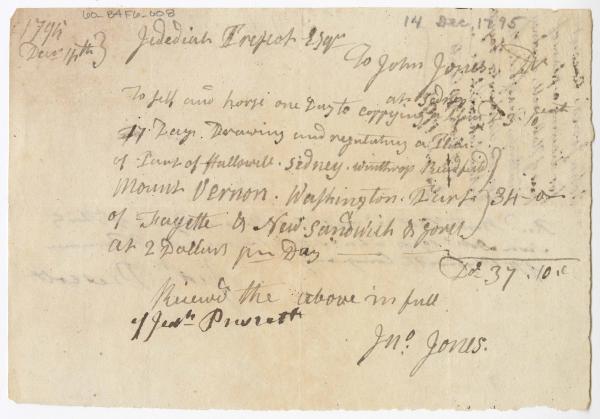 60-B4F6-008
14 Dec 1795
1795
Decr 14th
Jedediah Prescot Esqr
To John Jones Dr
To self and horse one Day to copying at Sidney 3:10 cent
17 Days Drawing and regulating a Plan
of Part of Hallowell. Sidney. Winthrop Readfield
Mount Vernon. Washington. Part 34-0
of Fayette & New Sandwich &
at 2 Dollars pr Day
Do 37:10
Receivd the above in full
of Jedh Prescott
Jno Jones.